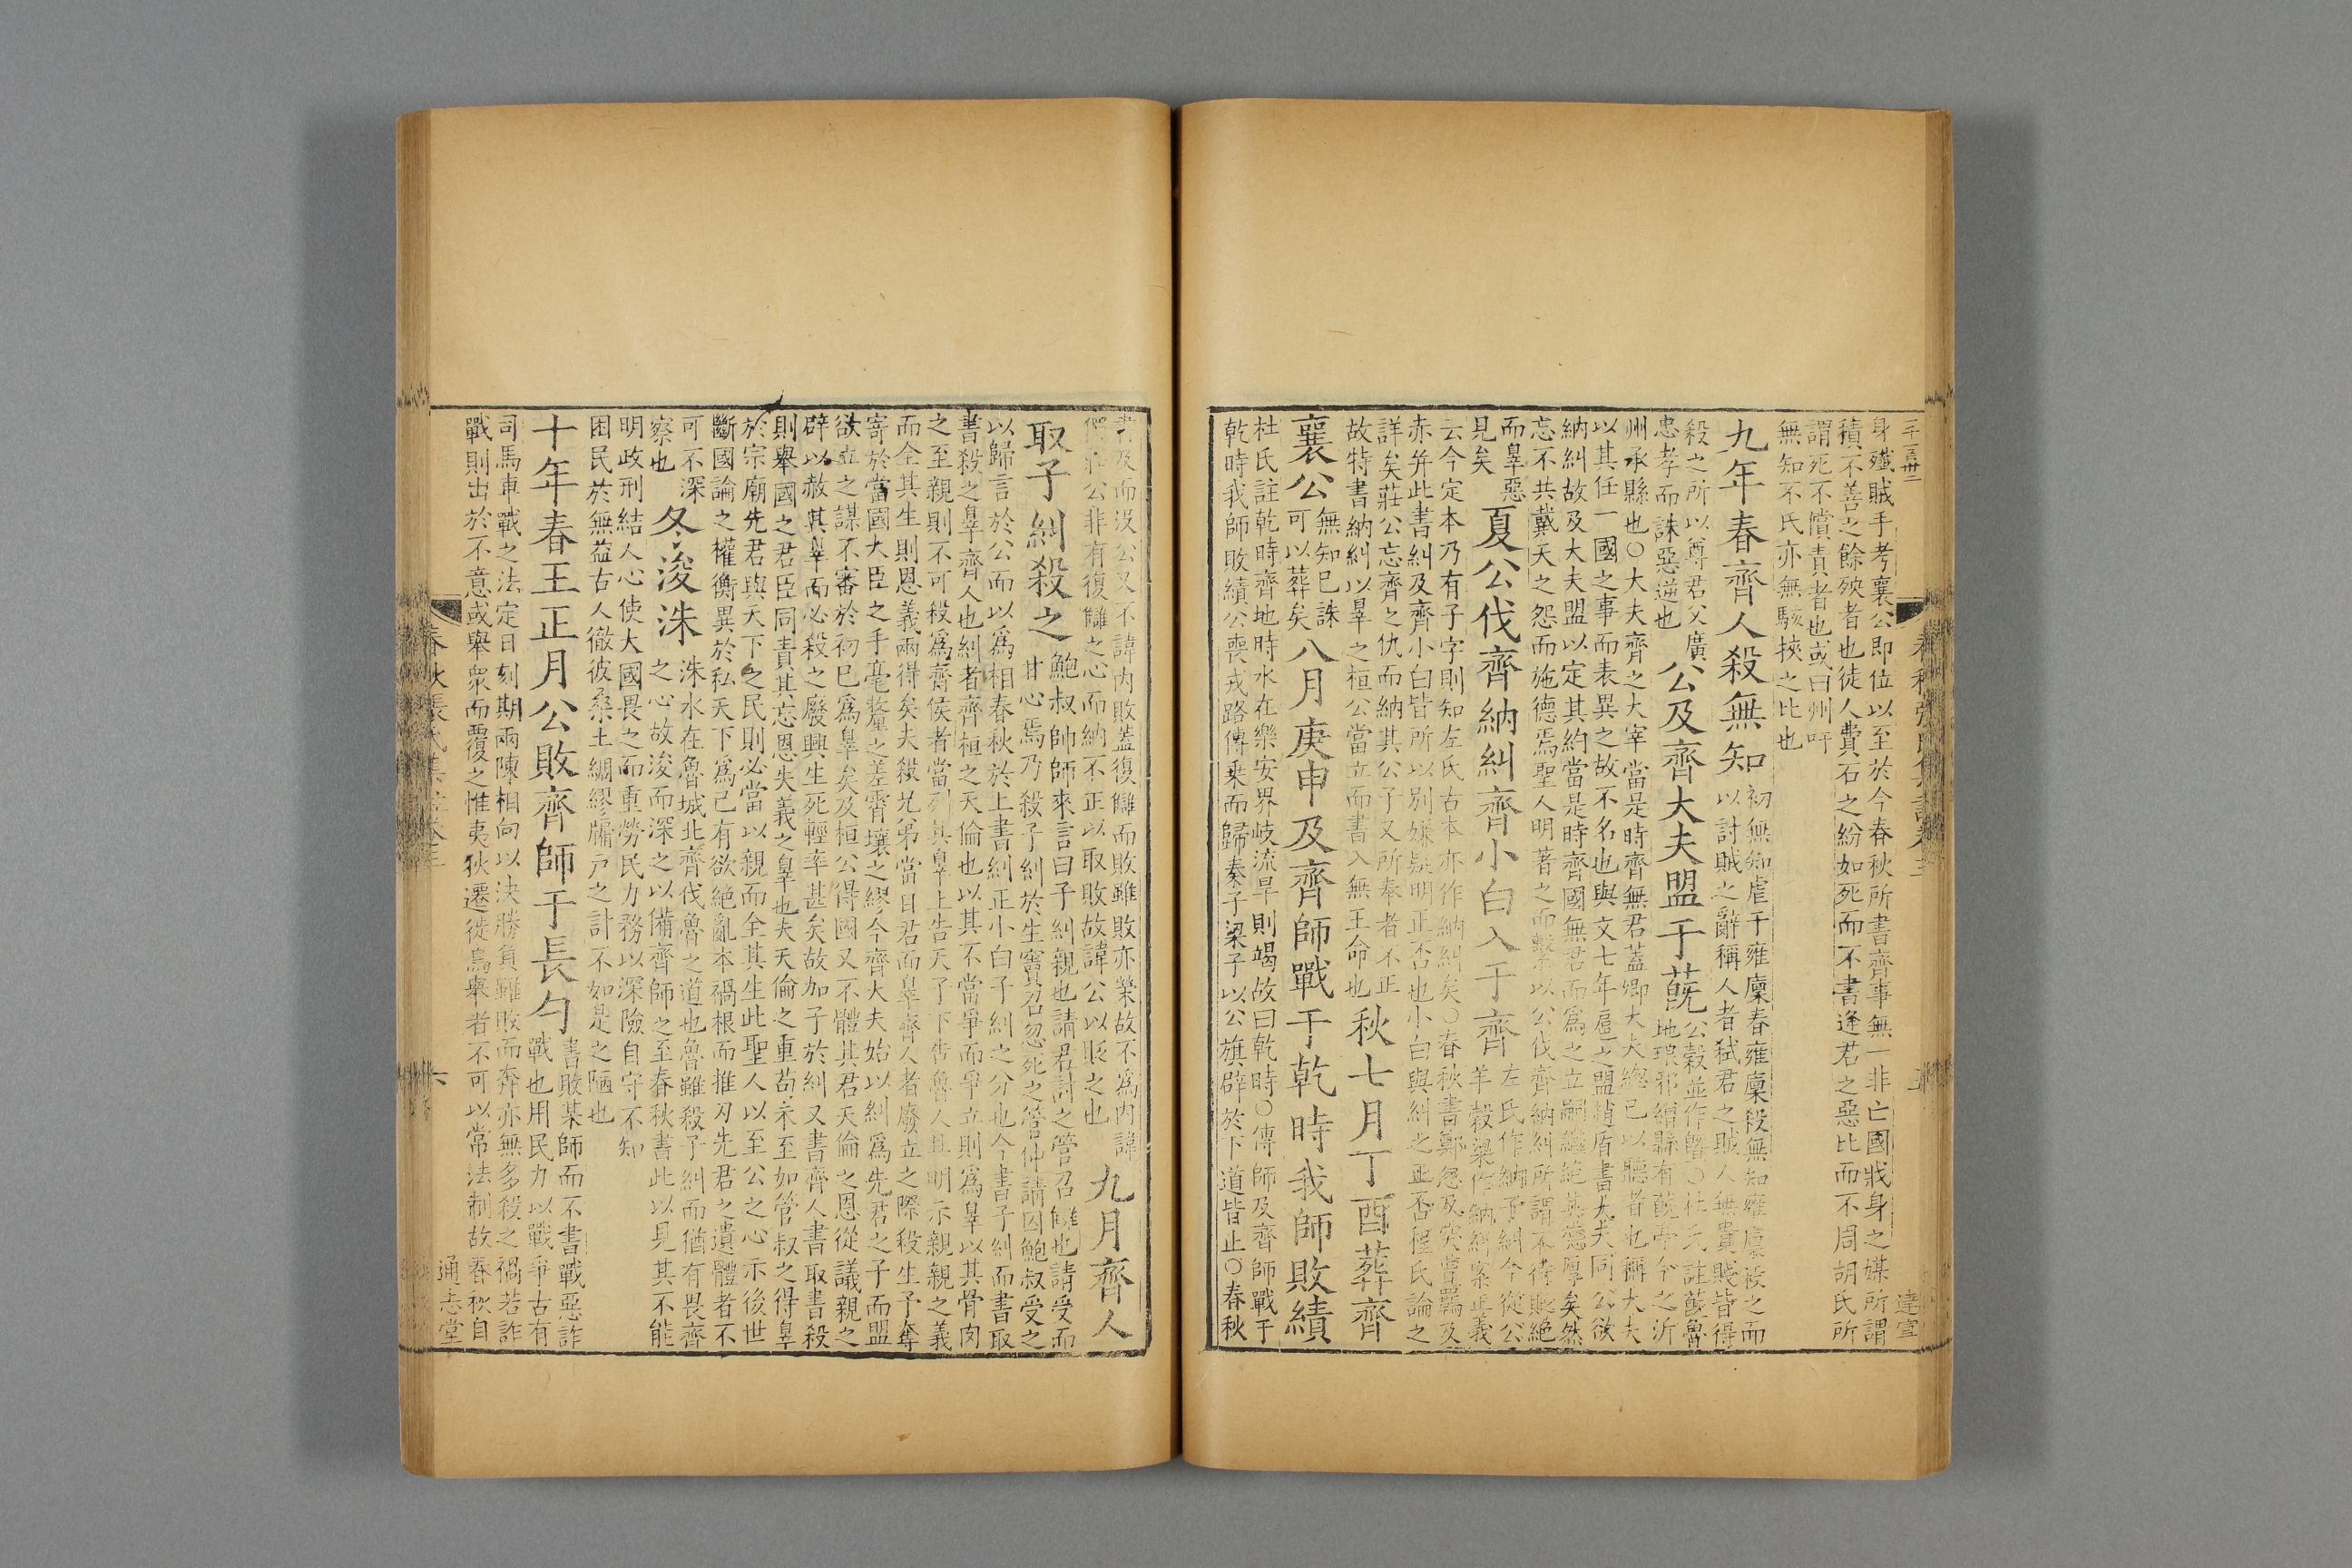 三千三百卅二
春秋張氏集註卷三
五
達宣
身殲賊手考襄公即位以至於今春秋所書齊事無一非亡國戕身之媒所謂
積不善之餘殃者也徒人費石之紛如死而不書逢君之惡比而不周胡氏所
謂死不償責者也或曰州吁
無知不氏亦無駭挾之比也
九年春齊人殺無知
初無知虐于雍廩春雍廩殺無知雍廩役之而
以討賊之辭稱人者弒君之賊人無貴賤皆得
殺之所以尊君父廣
忠孝而誅惡逆也
公及齊大夫盟于蔇
公穀並作曁○杜氏註蔇魯
地琅邪繒縣有蔇亭今之沂
州承縣也○大夫齊之大宰當是時齊無君蓋卿大夫總已以聽者也稱大夫
以其任一國之事而表異之故不名也與文七年扈之盟趙盾書大夫同公欲
納糾故及大夫盟以定其約當是時齊國無君而爲之立嗣繼絶其德厚矣然
忘不共戴天之怨而施德焉聖人明著之而繫以公伐齊納糾所謂不待貶絶
而辠惡
見矣
夏公伐齊納糾齊小白入于齊
左氏作納子糾今從公
羊穀梁作納糾案正義
云今定本乃有子字則知左氏古本亦作納糾矣○春秋書鄭忽及突曹羈及
赤并此書糾及齊小白皆所以別嫌疑明正否也小白與糾之正否程氏論之
詳矣莊公忘齊之仇而納其公子又所奉者不正
故特書納糾以辠之桓公當立而書入無王命也
秋七月丁酉葬齊
襄公
無知已誅
可以葬矣
八月庚申及齊師戰于乾時我師敗績
杜氏註乾時齊地時水在樂安界岐流旱則竭故曰乾時○傳師及齊師戰于
乾時我師敗績公喪戎路傳乗而歸秦子梁子以公旗辟於下道皆止○春秋
書及而没公又不諱内敗蓋復讎而敗雖敗亦榮故不爲内諱
莊公非有復讎之心而納不正以取敗故諱公以貶之也
九月齊人
取子糾殺之
鮑叔帥師來言曰子糾親也請君討之管召讎也請受而
甘心焉乃殺子糾於生竇召忽死之管仲請囚鮑叔受之
以歸言於公而以爲相春秋於上書糾正小白子糾之分也今書子糾而書取
書殺之辠齊人也糾者齊桓之天倫也以其不當爭而爭立則爲辠以其骨肉
之至親則不可殺爲齊侯者當列其辠上告天子下告魯人且明示親親之義
而全其生則恩義兩得矣夫殺兄弟當目君而辠齊人者廢立之際殺生予奪
寄於當國大臣之手毫釐之差霄壤之繆今齊大夫始以糾爲先君之子而盟
欲立之謀不審於初巳爲辠矣及桓公得國又不體其君天倫之恩從議親之
辟以赦其辠而必殺之廢興生死輕率甚矣故加子於糾又書齊人書取書殺
則舉國之君臣同責其忘恩失義之辠也夫天倫之重苟未至如管叔之得辠
於宗廟先君與天下之民則必當以親而全其生此聖人以至公之心示後世
斷國論之權衡異於私天下爲己有欲絶亂本禍根而推刃先君之遺體者不
可不深
察也
冬浚洙
洙水在魯城北齊伐魯之道也魯雖殺子糾而猶有畏齊
之心故浚而深之以備齊師之至春秋書此以見其不能
明政刑結人心使大國畏之而重勞民力務以深險自守不知
困民於無益古人徹彼桑土綢繆牖户之計不如是之陋也
十年春王正月公敗齊師于長勺
書敗某師而不書戰惡詐
戰也用民力以戰爭古有
司馬車戰之法定日刻期兩陳相向以決勝負雖敗而奔亦無多殺之禍若詐
戰則出於不意或舉衆而覆之惟夷狄遷徙鳥舉者不可以常法制故春秋自
春秋張氏集註卷三
六
通志堂